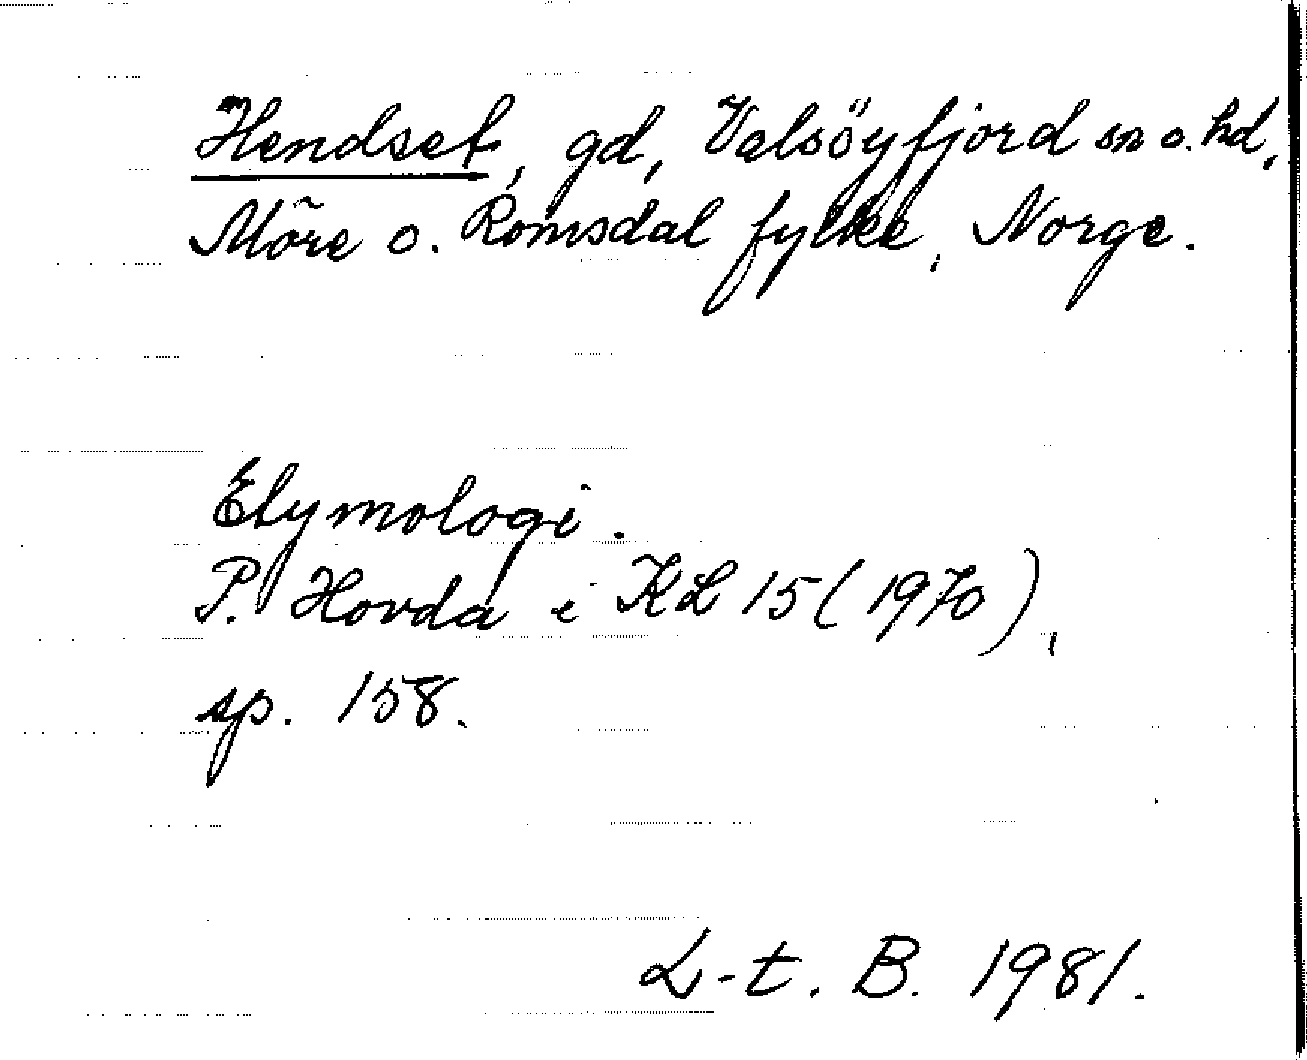 Hendset, gd, Valsöyfjord sn o. hd,
Möre o. Romsdal fylke, Norge.
Etymologi.
P. Hovda i KL 15 (1970),
sp. 158.
L-t. B. 1981.